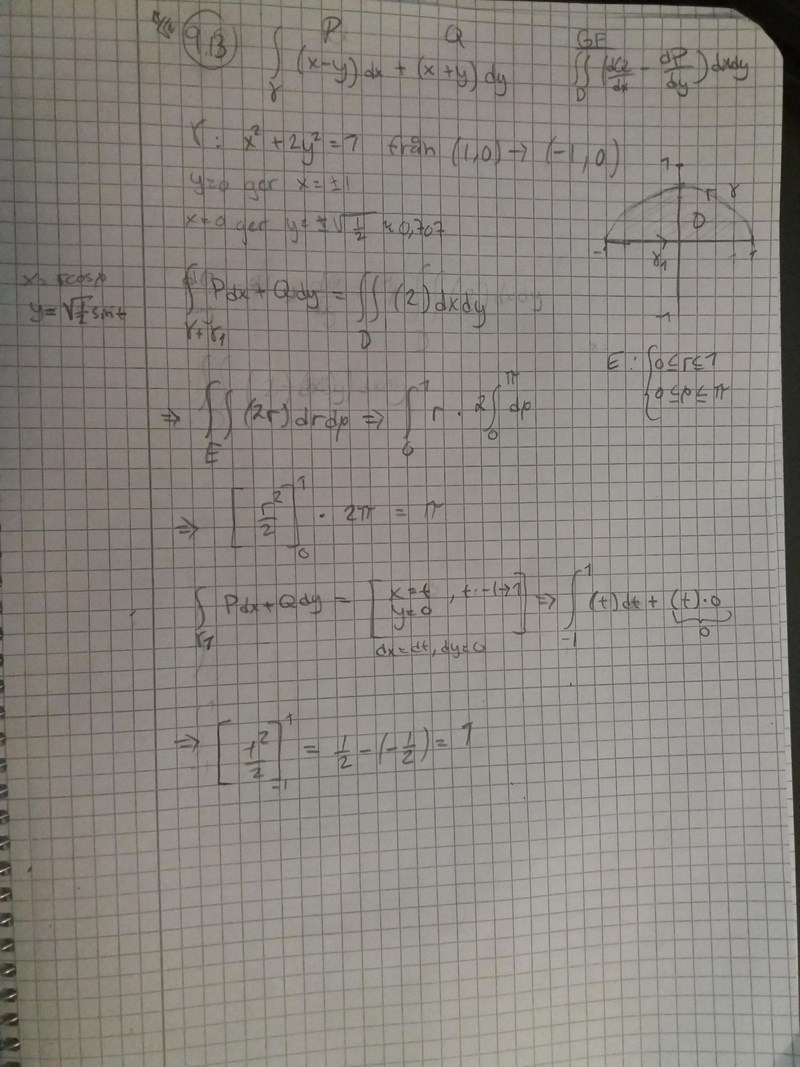 9.13 ∫γ (x-y) dx + (x+y) dy
P Q
GF
∬D (dQ/dx - dP/dy) dxdy
γ: x² + 2y² = 1 från (1,0) → (-1,0)
y=0 ger x=±1
x=0 ger y=±√(1/2) ≈ 0,707
1 γ
D
-1 γ1 1
-1
y=√(1/2) sin t
∫γ+γ1 Pdx + Qdy = ∬D (2) dxdy
E: { 0≤r≤1
0≤φ≤π
⇒ ∬E (2r) dr dφ ⇒ ∫0^1 r · 2 ∫0^π dφ
⇒ [r²/2]0^1 · 2π = π
∫γ1 Pdx + Qdy = [x=t, y=0, t:-1→1] ⇒ ∫-1^1 (t) dt + (t)·0
dx=dt, dy=0 0
⇒ [t²/2]-1^1 = 1/2 - (-1/2) = 1